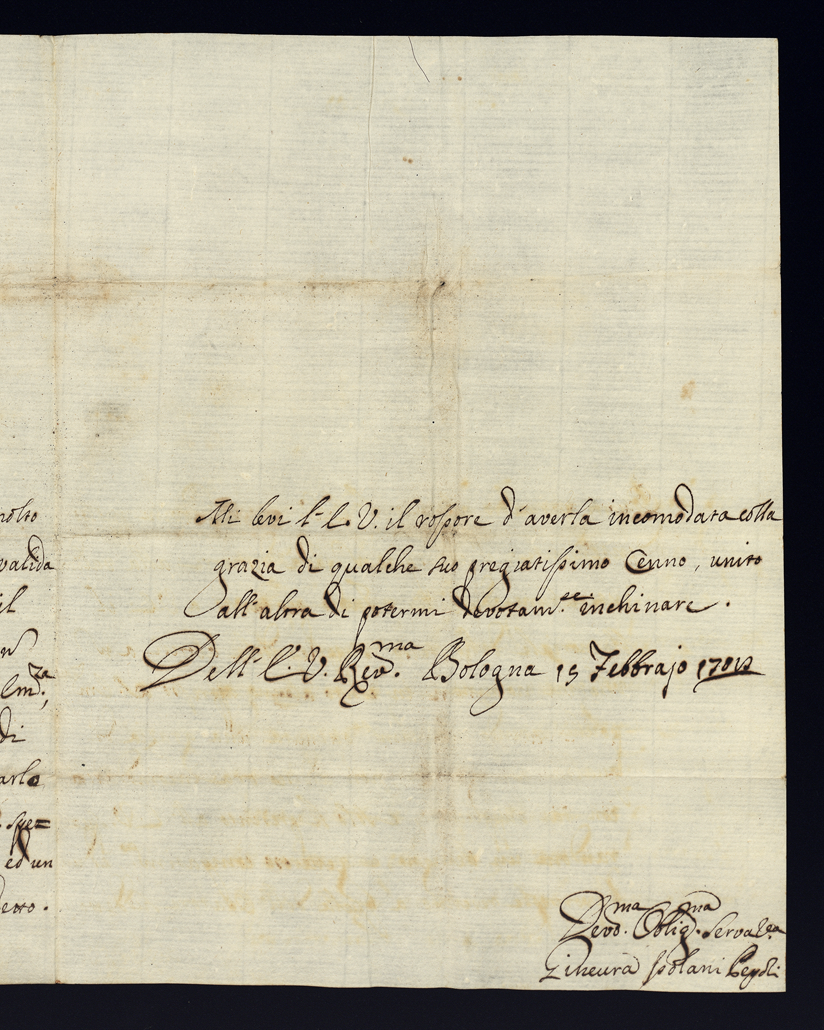 molto
valida
il
Em.za;
di
arlo
spe=
ed un
detto.
Mi levi l'E. V. il rossore d'averla incomodata colla
grazia di qualche suo pregiatissimo Cenno, unito
all'altra di potermi devotam.te inchinare.
Dell'E. V. Rev.ma Bologna 15 Febbrajo
Dev.ma Oblig.ma Serva
Ginevra Isolani Pepoli